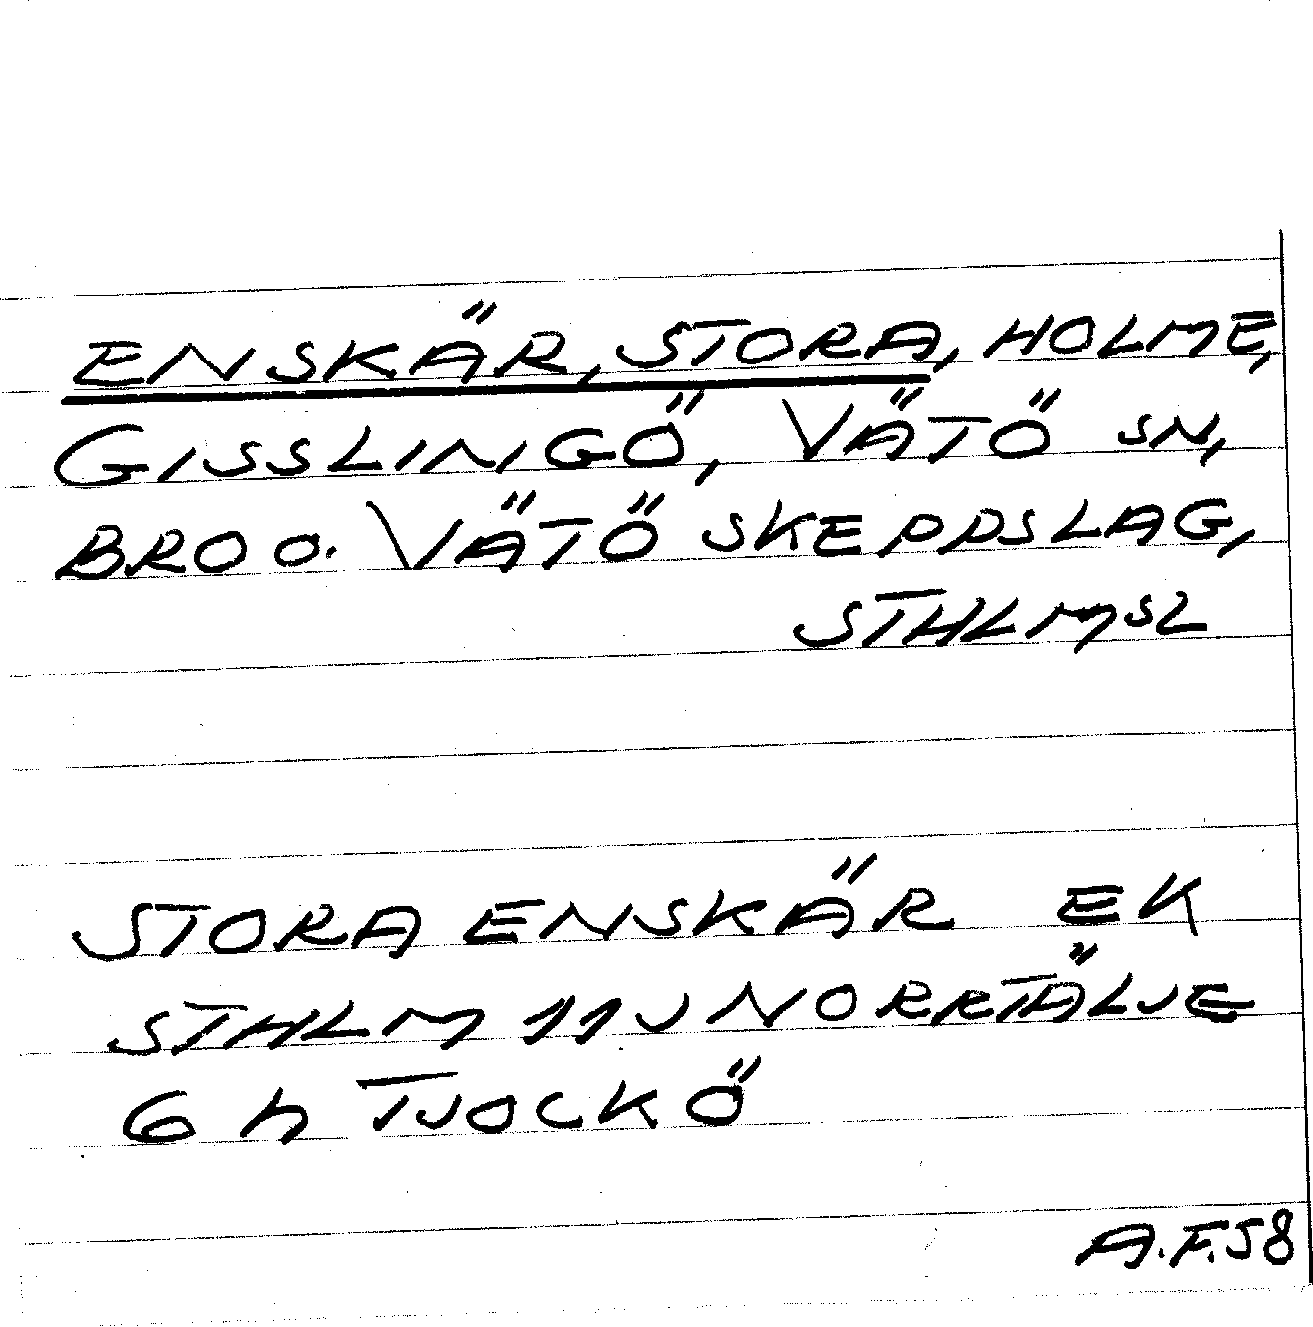 ENSKÄR, STORA, HOLME,
GISSLINGÖ, VÄTÖ SN,
BRO O. VÄTÖ SKEPPSLAG,
STHLMSL
STORA ENSKÄR EK
STHLM 11J NORRTÄLJE
6 h TJOCKÖ
A.F.58